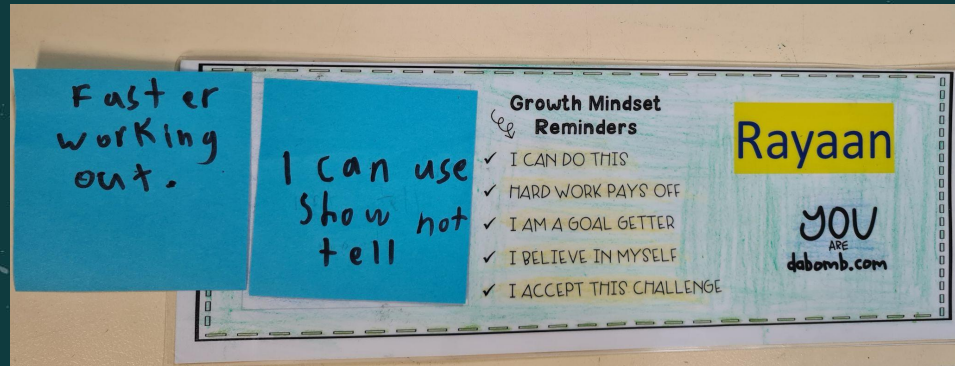 Faster
working
out.
I can use
show not
tell
Growth Mindset
Reminders
✓ I CAN DO THIS
✓ HARD WORK PAYS OFF
✓ I AM A GOAL GETTER
✓ I BELIEVE IN MYSELF
✓ I ACCEPT THIS CHALLENGE
Rayaan
YOU
ARE
dabomb.com